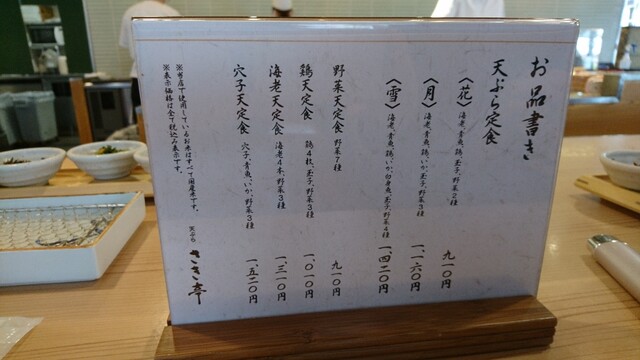 お品書き
天ぷら定食
〈花〉 海老、青魚、鶏、玉子、野菜2種 九一〇円
〈月〉 海老、青魚、鶏、いか、玉子、野菜3種 一、一六〇円
〈雪〉 海老、青魚、鶏、いか、白身魚、玉子、野菜4種 一、四二〇円
野菜天定食 野菜7種 九一〇円
鶏天定食 鶏4枚、玉子、野菜3種 一、〇一〇円
海老天定食 海老4本、野菜3種 一、三一〇円
穴子天定食 穴子、青魚、いか、野菜3種 一、五二〇円
※当店で使用しているお米はすべて国産米です。
※表示価格は全て税込み表示です。
天ぷら さき亭